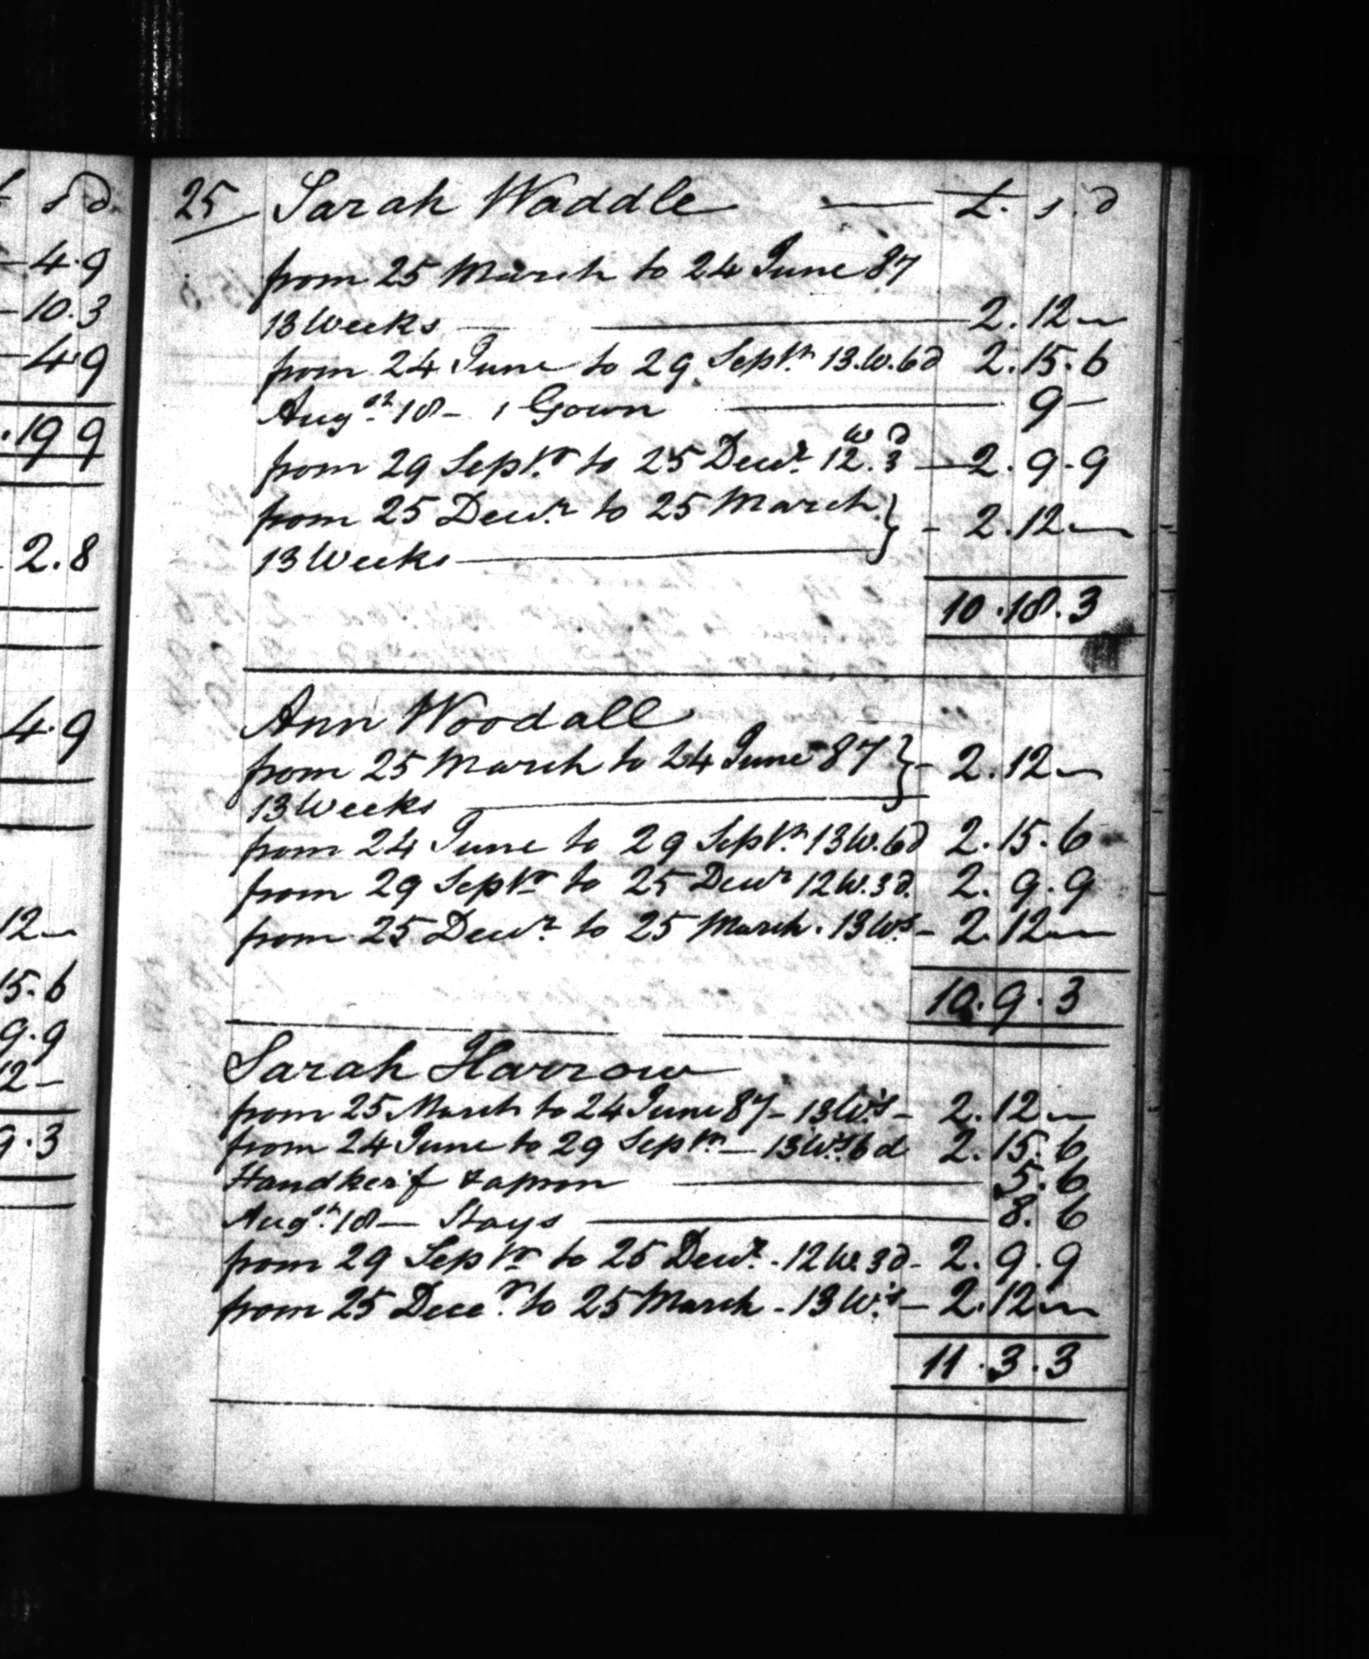 s d.
4.9
10.3
4.9
.19 9
2.8
4.9
12
15.6
9.9
12
9.3
25 Sarah Waddle £. s. d
from 25 March to 24 June 87
13 Weeks 2.12
from 24 June to 29 Septr. 13.W.6d 2.15.6
Augst. 18 - 1 Gown 9
w d
from 29 Septr. to 25 Decr. 12.3 2.9.9
from 25 Decr. to 25 March } 2.12
13 Weeks
10.18.3
Ann Woodall
from 25 March to 24 June 87 } 2.12
13 Weeks
from 24 June to 29 Septr. 13W.6d 2.15.6
from 29 Septr. to 25 Decr 12W.3d. 2.9.9
from 25 Decr. to 25 March. 13Ws. 2.12
10.9.3
Sarah Harrow
from 25 March to 24 June 87 - 13W.s 2.12
from 24 June to 29 Septr. - 13Ws.6d 2.15.6
Handkerf & apron 5.6
Augst. 18 - Stays 8.6
from 29 Septr. to 25 Decr. - 12W.3d - 2.9.9
from 25 Decer. to 25 March - 13W.s - 2.12
11.3.3